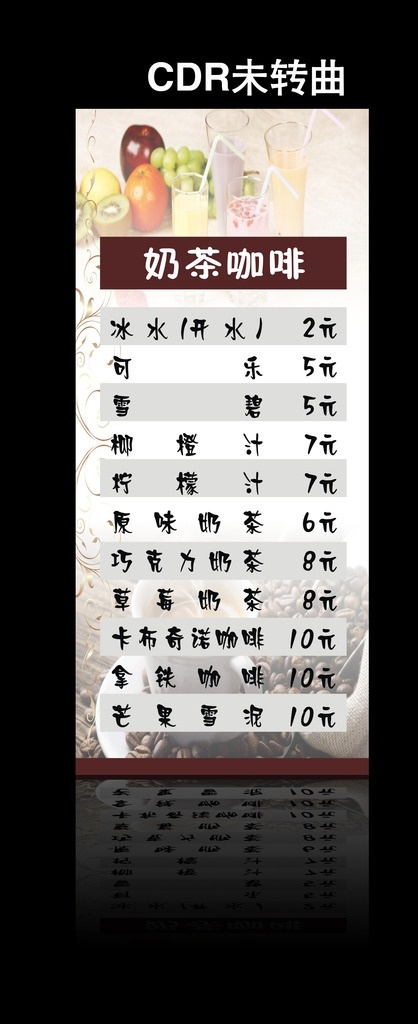 CDR未转曲
奶茶咖啡
冰水(开水) 2元
可乐 5元
雪碧 5元
柳橙汁 7元
柠檬汁 7元
原味奶茶 6元
巧克力奶茶 8元
草莓奶茶 8元
卡布奇诺咖啡 10元
拿铁咖啡 10元
芒果雪泥 10元